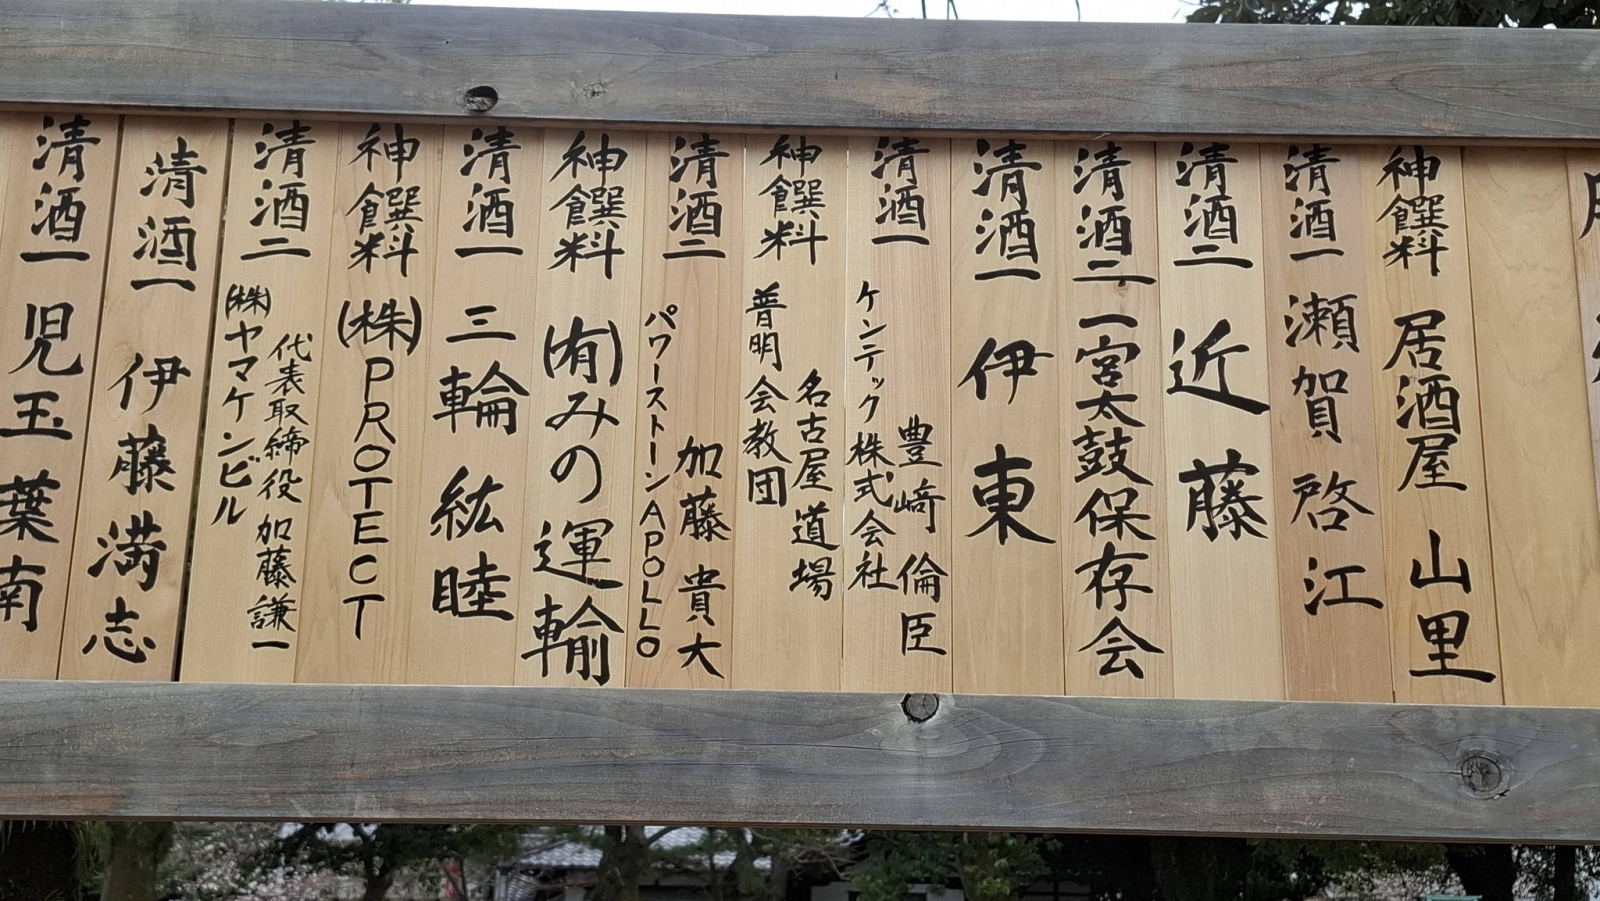 神饌料 居酒屋 山里
清酒一 瀬賀啓江
清酒二 近藤
清酒二 一宮太鼓保存会
清酒一 伊東
清酒一
豊﨑倫臣
ケンテック株式会社
神饌料
名古屋道場
普明会教団
清酒二
加藤貴大
パワーストーンAPOLLO
神饌料 (有)みの運輸
清酒一 三輪紘睦
神饌料 (株)PROTECT
清酒二
代表取締役 加藤謙一
(株)ヤマケンビル
清酒一 伊藤満志
清酒一 児玉葉南